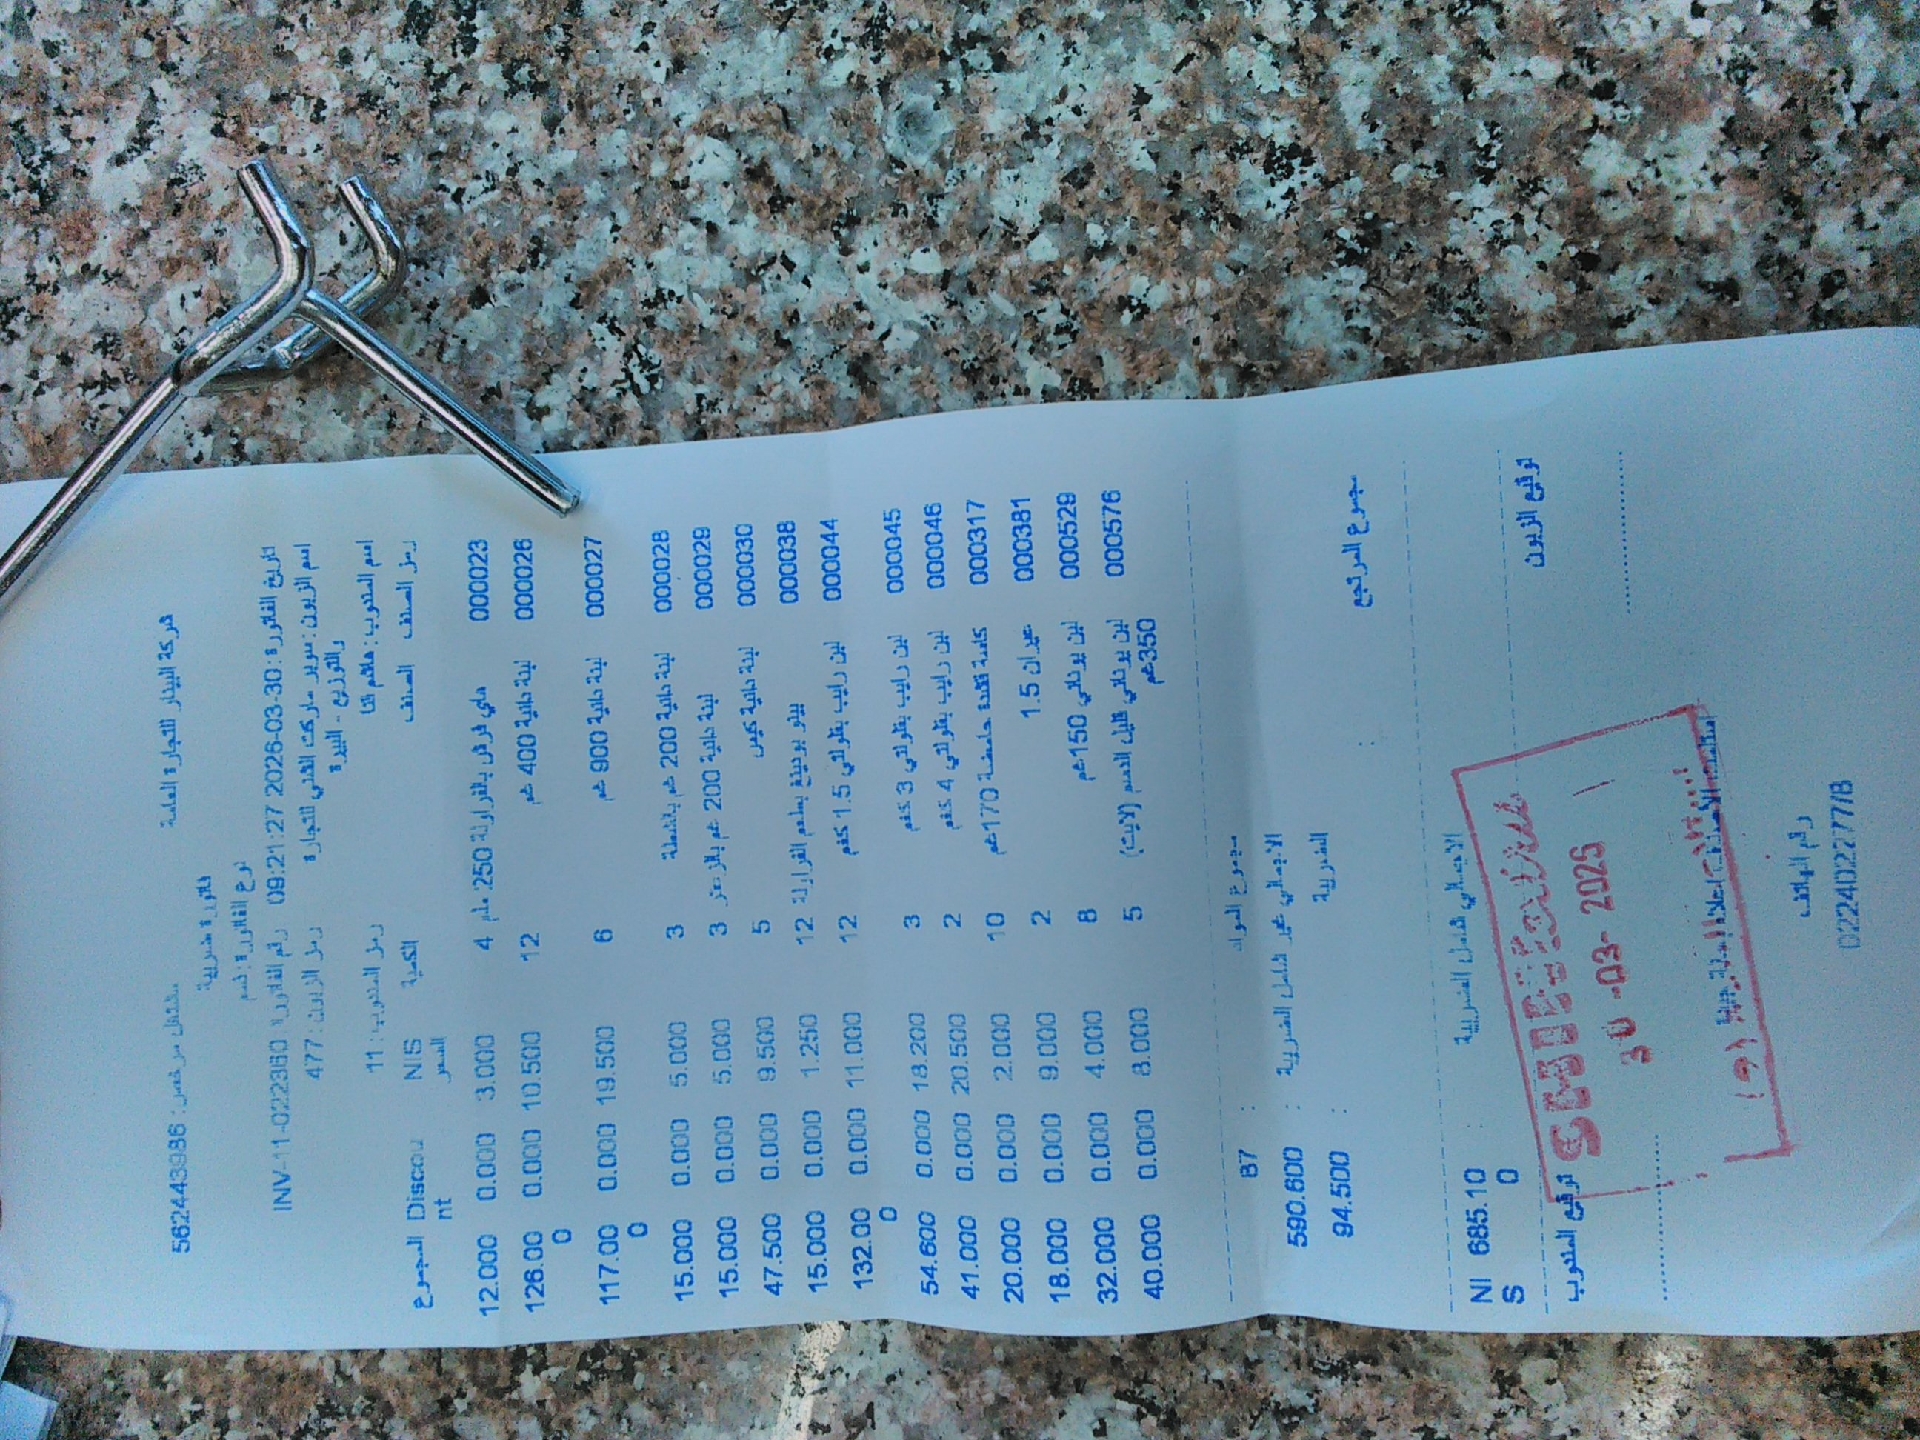 شركة البيدار للتجارة العامة
مشتغل مرخص: 562443986
فاتورة ضريبية
نوع الفاتورة: ذمم
تاريخ الفاتورة: 2026-03-30 09:21:27 رقم الفاتورة: INV-11-022360
اسم الزبون: سوبر ماركت الغني للتجارة رمز الزبون: 477
والتوزيع - البيرة
اسم المندوب: رمز المندوب: 11
رمز الصنف الصنف الكمية NIS السعر Discount المجموع
000023 ماي فرش بالفراولة 250 ملم 4 3.000 0.000 12.000
000026 لبنة دانية 400 غم 12 10.500 0.000 126.000
000027 لبنة دانية 900 غم 6 19.500 0.000 117.000
000028 لبنة دانية 200 غم بالشطة 3 5.000 0.000 15.000
000029 لبنة دانية 200 غم بالزعتر 3 5.000 0.000 15.000
000030 لبنة دانية كيس 5 9.500 0.000 47.500
000038 بودينغ بطعم الفراولة 12 1.250 0.000 15.000
000044 لبن رايب بقولاتي 1.5 كغم 12 11.000 0.000 132.000
000045 لبن رايب بقولاتي 3 كغم 3 18.200 0.000 54.600
000046 لبن رايب بقولاتي 4 كغم 2 20.500 0.000 41.000
000317 حامضة 170غم 10 2.000 0.000 20.000
000381 عيران 1.5 2 9.000 0.000 18.000
000529 لبن يوناني 150غم 8 4.000 0.000 32.000
000576 لبن يوناني قليل الدسم (لايت) 5 8.000 0.000 40.000
350غم
مجموع المواد : 87
الاجمالي غير شامل الضريبة : 590.600
الضريبة : 94.500
مجموع المرتجع :
الاجمالي شامل الضريبة : 685.100 NIS
توقيع الزبون توقيع المندوب
30 -03- 2026
رقم الهاتف
022402777/8